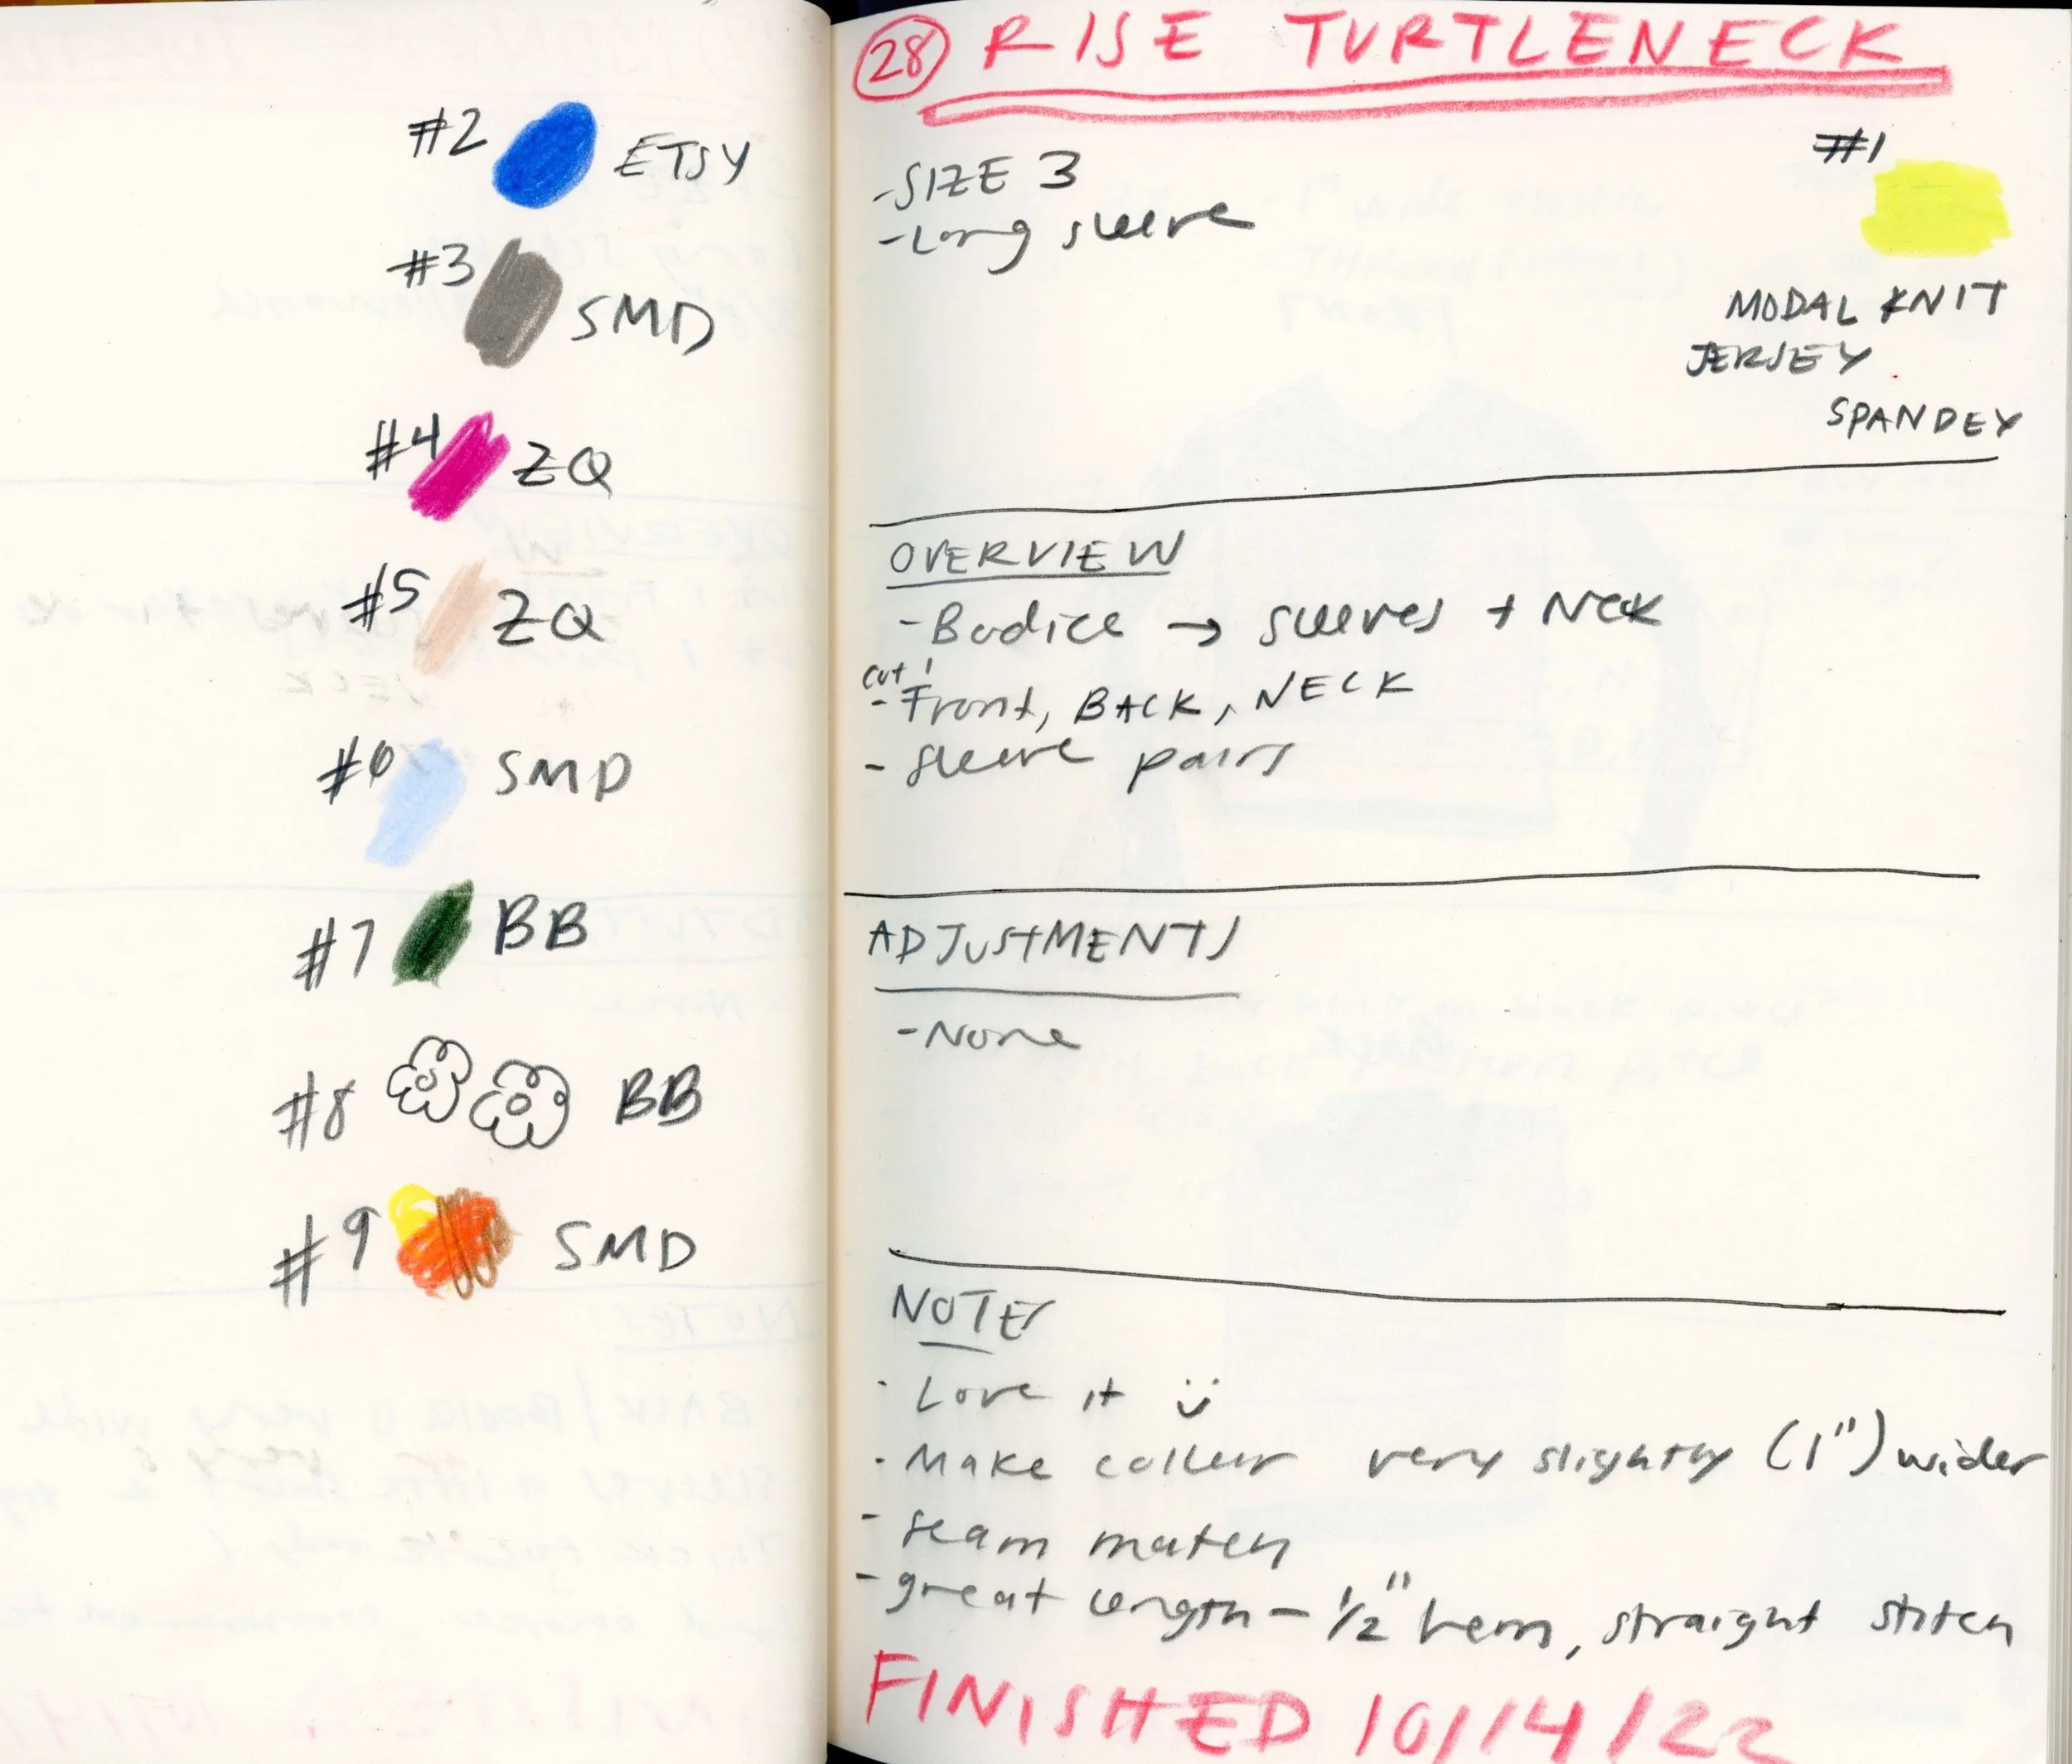 #2 ETSY
#3 SMD
#4 ZQ
#5 ZQ
#6 SMD
#7 BB
#8 BB
#9 SMD
28 RISE TURTLENECK
#1
-SIZE 3
-Long sleeve
MODAL KNIT
JERSEY
SPANDEX
OVERVIEW
-Bodice → sleeves + Neck
cut 1
-Front, BACK, NECK
- Sleeve pairs
ADJUSTMENTS
-None
NOTES
· Love it
· Make collar very slightly (1") wider
- seam match
- great length - 1/2" hem, straight stitch
FINISHED 10/14/22